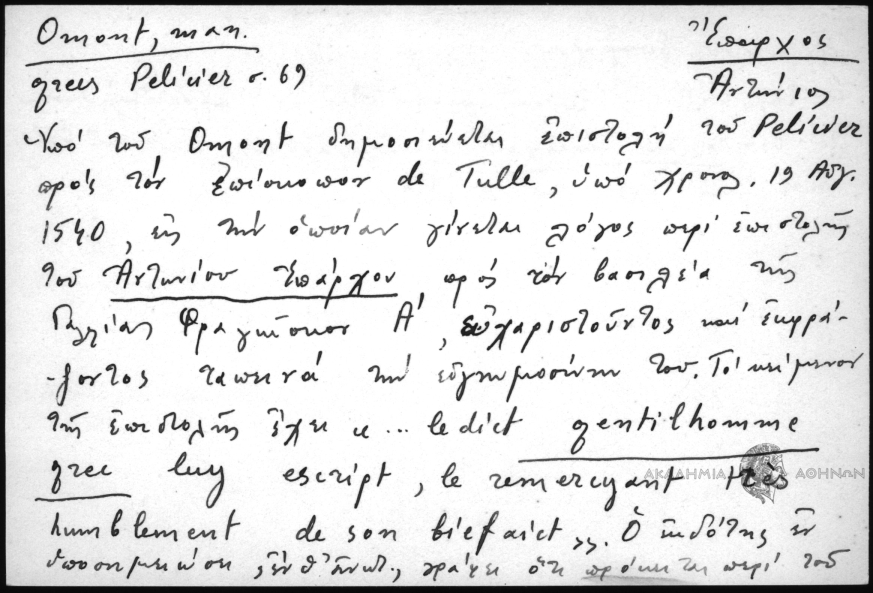 Omont, man.
grecs Pelicier σ. 69
Ἔπαρχος
Ἀντώνιος
Ὑπό τοῦ Omont δημοσιεύεται ἐπιστολή τοῦ Pelicier
πρός τόν ἐπίσκοπον de Tulle, ὑπό χρονολ. 19 Αὐγ.
1540, εἰς τήν ὁποίαν γίνεται λόγος περί ἐπιστολῆς
τοῦ Ἀντωνίου Ἐπάρχου, πρός τόν βασιλέα τῆς
Γαλλίας Φραγκῖσκον Α΄, εὐχαριστοῦντος καί ἐκφρά-
ζοντος ταπεινά τήν εὐγνωμοσύνην του. Τό κείμενον
τῆς ἐπιστολῆς ἔχει « ... ledict gentilhomme
grec luy escript, le remercyant très
humblement de son biefaict». Ὁ ἐκδότης ἐν
ὑποσημειώσει, ἐνθ' ἀνωτ., γράφει ὅτι πρόκειται περί τοῦ
ΑΚΑΔΗΜΙΑ ΑΘΗΝΩΝ